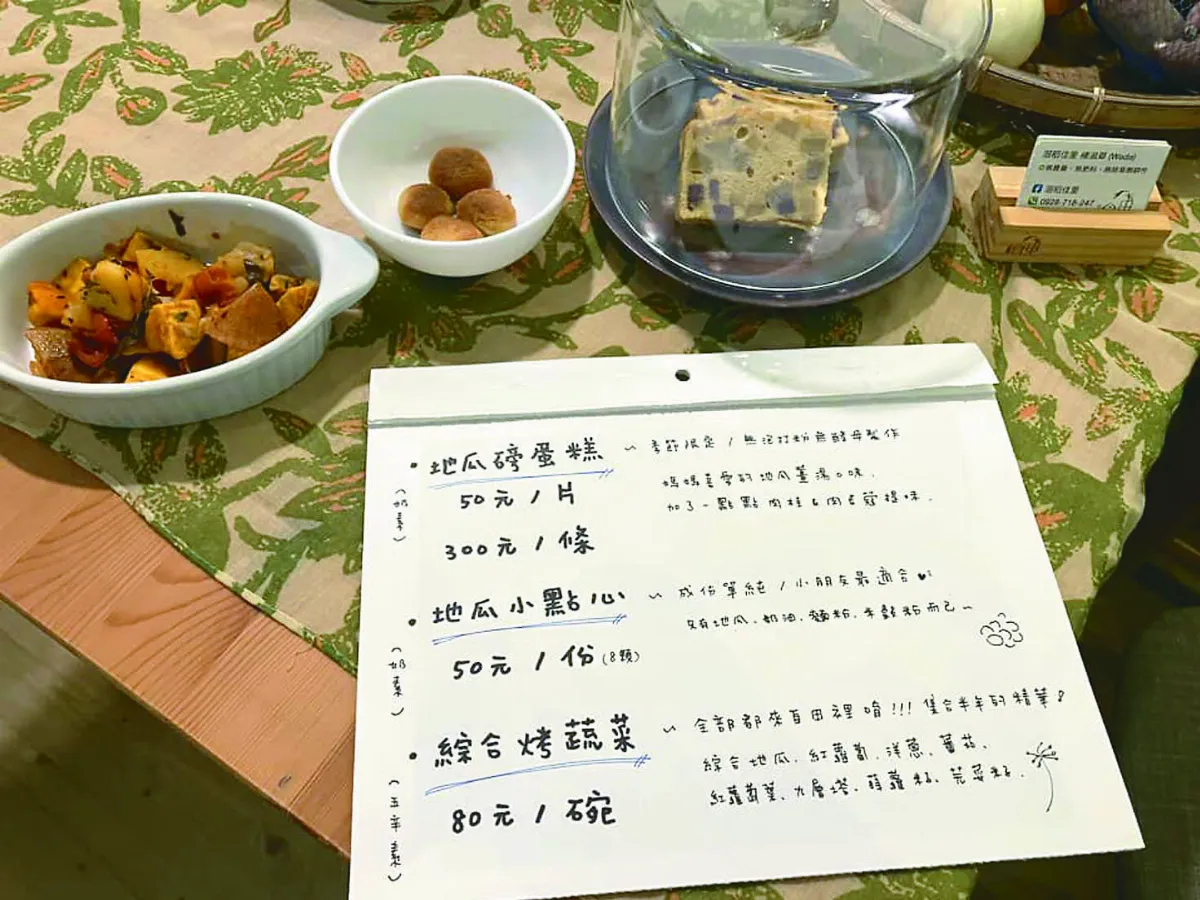 (Wada)
0928-718-247
• 地瓜磅蛋糕 ~ 季節限定 / 無泡打粉無酵母製作
(奶素)
50元 / 片
媽媽喜愛的地瓜薑湯口味.
加了一點點肉桂&肉豆蔻提味.
300元 / 條
• 地瓜小點心 ~ 成份單純 / 小朋友最適合♥
(奶素)
只有地瓜、奶油、麵粉、木薯粉而已~
50元 / 份(8顆)
• 綜合烤蔬菜 ~ 全部都來自田裡唷!!! 集合半年的精華!
(五辛素)
綜合地瓜、紅蘿蔔、洋蔥、蕃茄、
紅蘿蔔葉、九層塔、蒔蘿籽、芫荽籽.
80元 / 碗